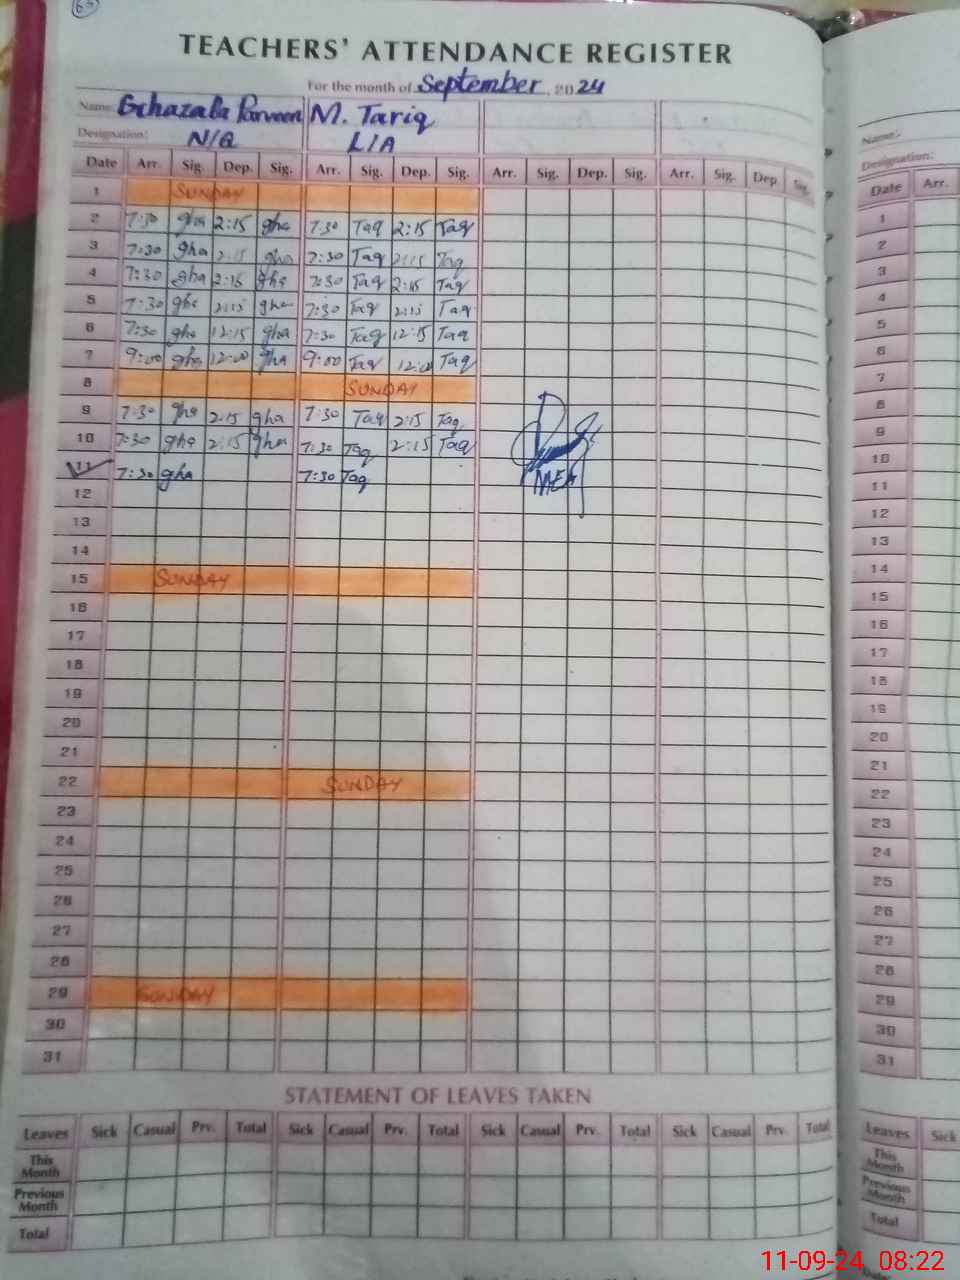 63
TEACHERS' ATTENDANCE REGISTER
For the month of September, 2024
Name: Gchazala Parveen M. Tariq
Designation: N/Q L/A
Date Arr. Sig. Dep. Sig. Arr. Sig. Dep. Sig. Arr. Sig. Dep. Sig. Arr. Sig. Dep. Sig.
1 SUNDAY
2 7:30 gha 2:15 gha 7:30 Taq 2:15 Taq
3 7:30 gha 2:15 gha 7:30 Taq 2:15 Taq
4 7:30 gha 2:15 gha 7:30 Taq 2:15 Taq
5 7:30 gha 2:15 gha 7:30 Taq 2:15 Taq
6 7:30 gha 12:15 gha 7:30 Taq 12:15 Taq
7 9:00 gha 12:00 gha 9:00 Taq 12:00 Taq
8 SUNDAY
9 7:30 gha 2:15 gha 7:30 Taq 2:15 Taq
10 7:30 gha 2:15 gha 7:30 Taq 2:15 Taq
11 7:30 gha 7:30 Taq
12
13
14
15 SUNDAY
16
17
18
19
20
21
22 SUNDAY
23
24
25
26
27
28
29 SUNDAY
30
31
STATEMENT OF LEAVES TAKEN
Leaves Sick Casual Prv. Total Sick Casual Prv. Total Sick Casual Prv. Total Sick Casual Prv. Total
This Month
Previous Month
Total
Name:-
Designation:
Date Arr.
1
2
3
4
5
6
7
8
9
10
11
12
13
14
15
16
17
18
19
20
21
22
23
24
25
26
27
28
29
30
31
Leaves Sick
This Month
Previous Month
Total
11-09-24 08:22